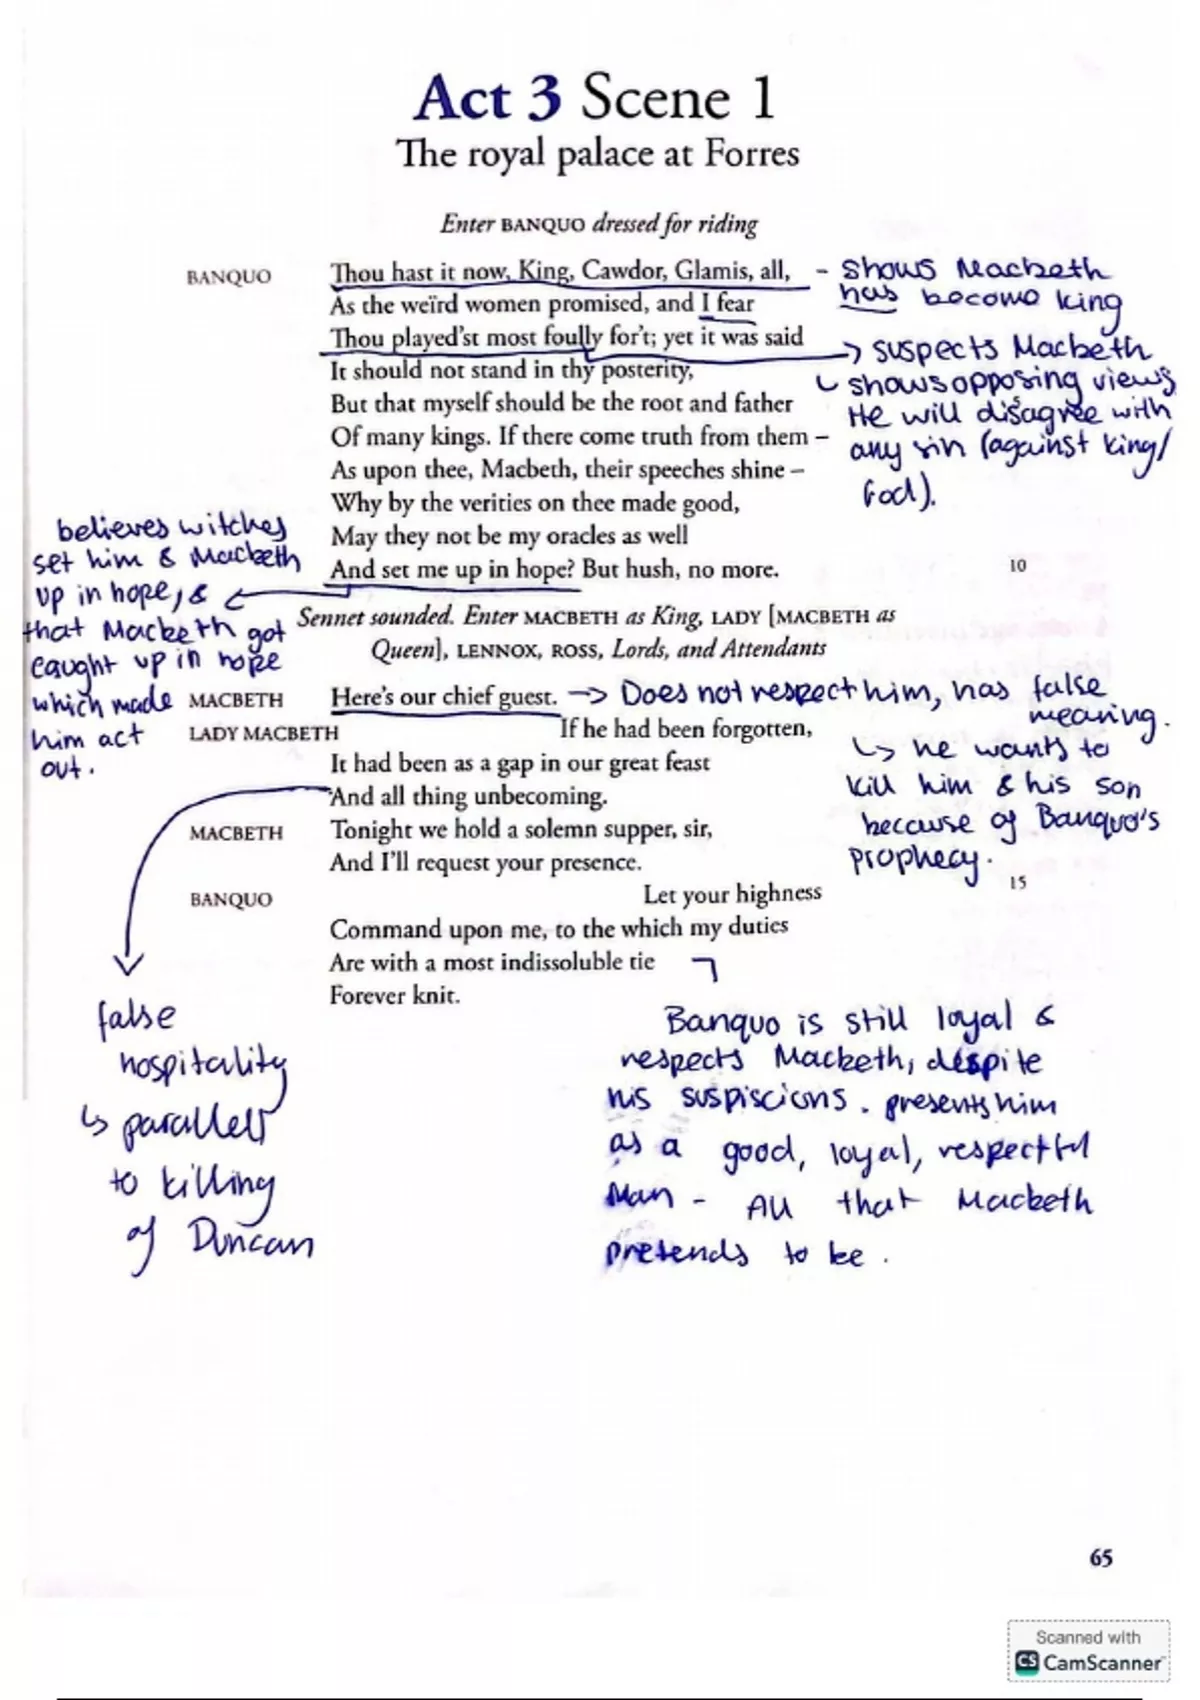 Act 3 Scene 1
The royal palace at Forres
Enter BANQUO dressed for riding
BANQUO Thou hast it now, King, Cawdor, Glamis, all,
As the weïrd women promised, and I fear
Thou played'st most foully for't; yet it was said
It should not stand in thy posterity,
But that myself should be the root and father
Of many kings. If there come truth from them –
As upon thee, Macbeth, their speeches shine –
Why by the verities on thee made good,
May they not be my oracles as well
And set me up in hope? But hush, no more. 10
- shows Macbeth
has become king
→ suspects Macbeth
↳ shows opposing views
He will disagree with
any sin (against king/
God).
believes witches
set him & Macbeth
up in hope, &
that Macbeth got
caught up in hope
which made
him act
out.
Sennet sounded. Enter MACBETH as King, LADY [MACBETH as
Queen], LENNOX, ROSS, Lords, and Attendants
MACBETH Here's our chief guest.
→ Does not respect him, has false
meaning.
↳ he wants to
kill him & his son
because of Banquo's
prophecy.
LADY MACBETH If he had been forgotten,
It had been as a gap in our great feast
And all thing unbecoming.
MACBETH Tonight we hold a solemn supper, sir,
And I'll request your presence. 15
BANQUO Let your highness
Command upon me, to the which my duties
Are with a most indissoluble tie
Forever knit.
false
hospitality
↳ parallels
to killing
of Duncan
Banquo is still loyal &
respects Macbeth, despite
his suspiscions. presents him
as a good, loyal, respectful
Man - All that Macbeth
pretends to be.
65
Scanned with
CS CamScanner